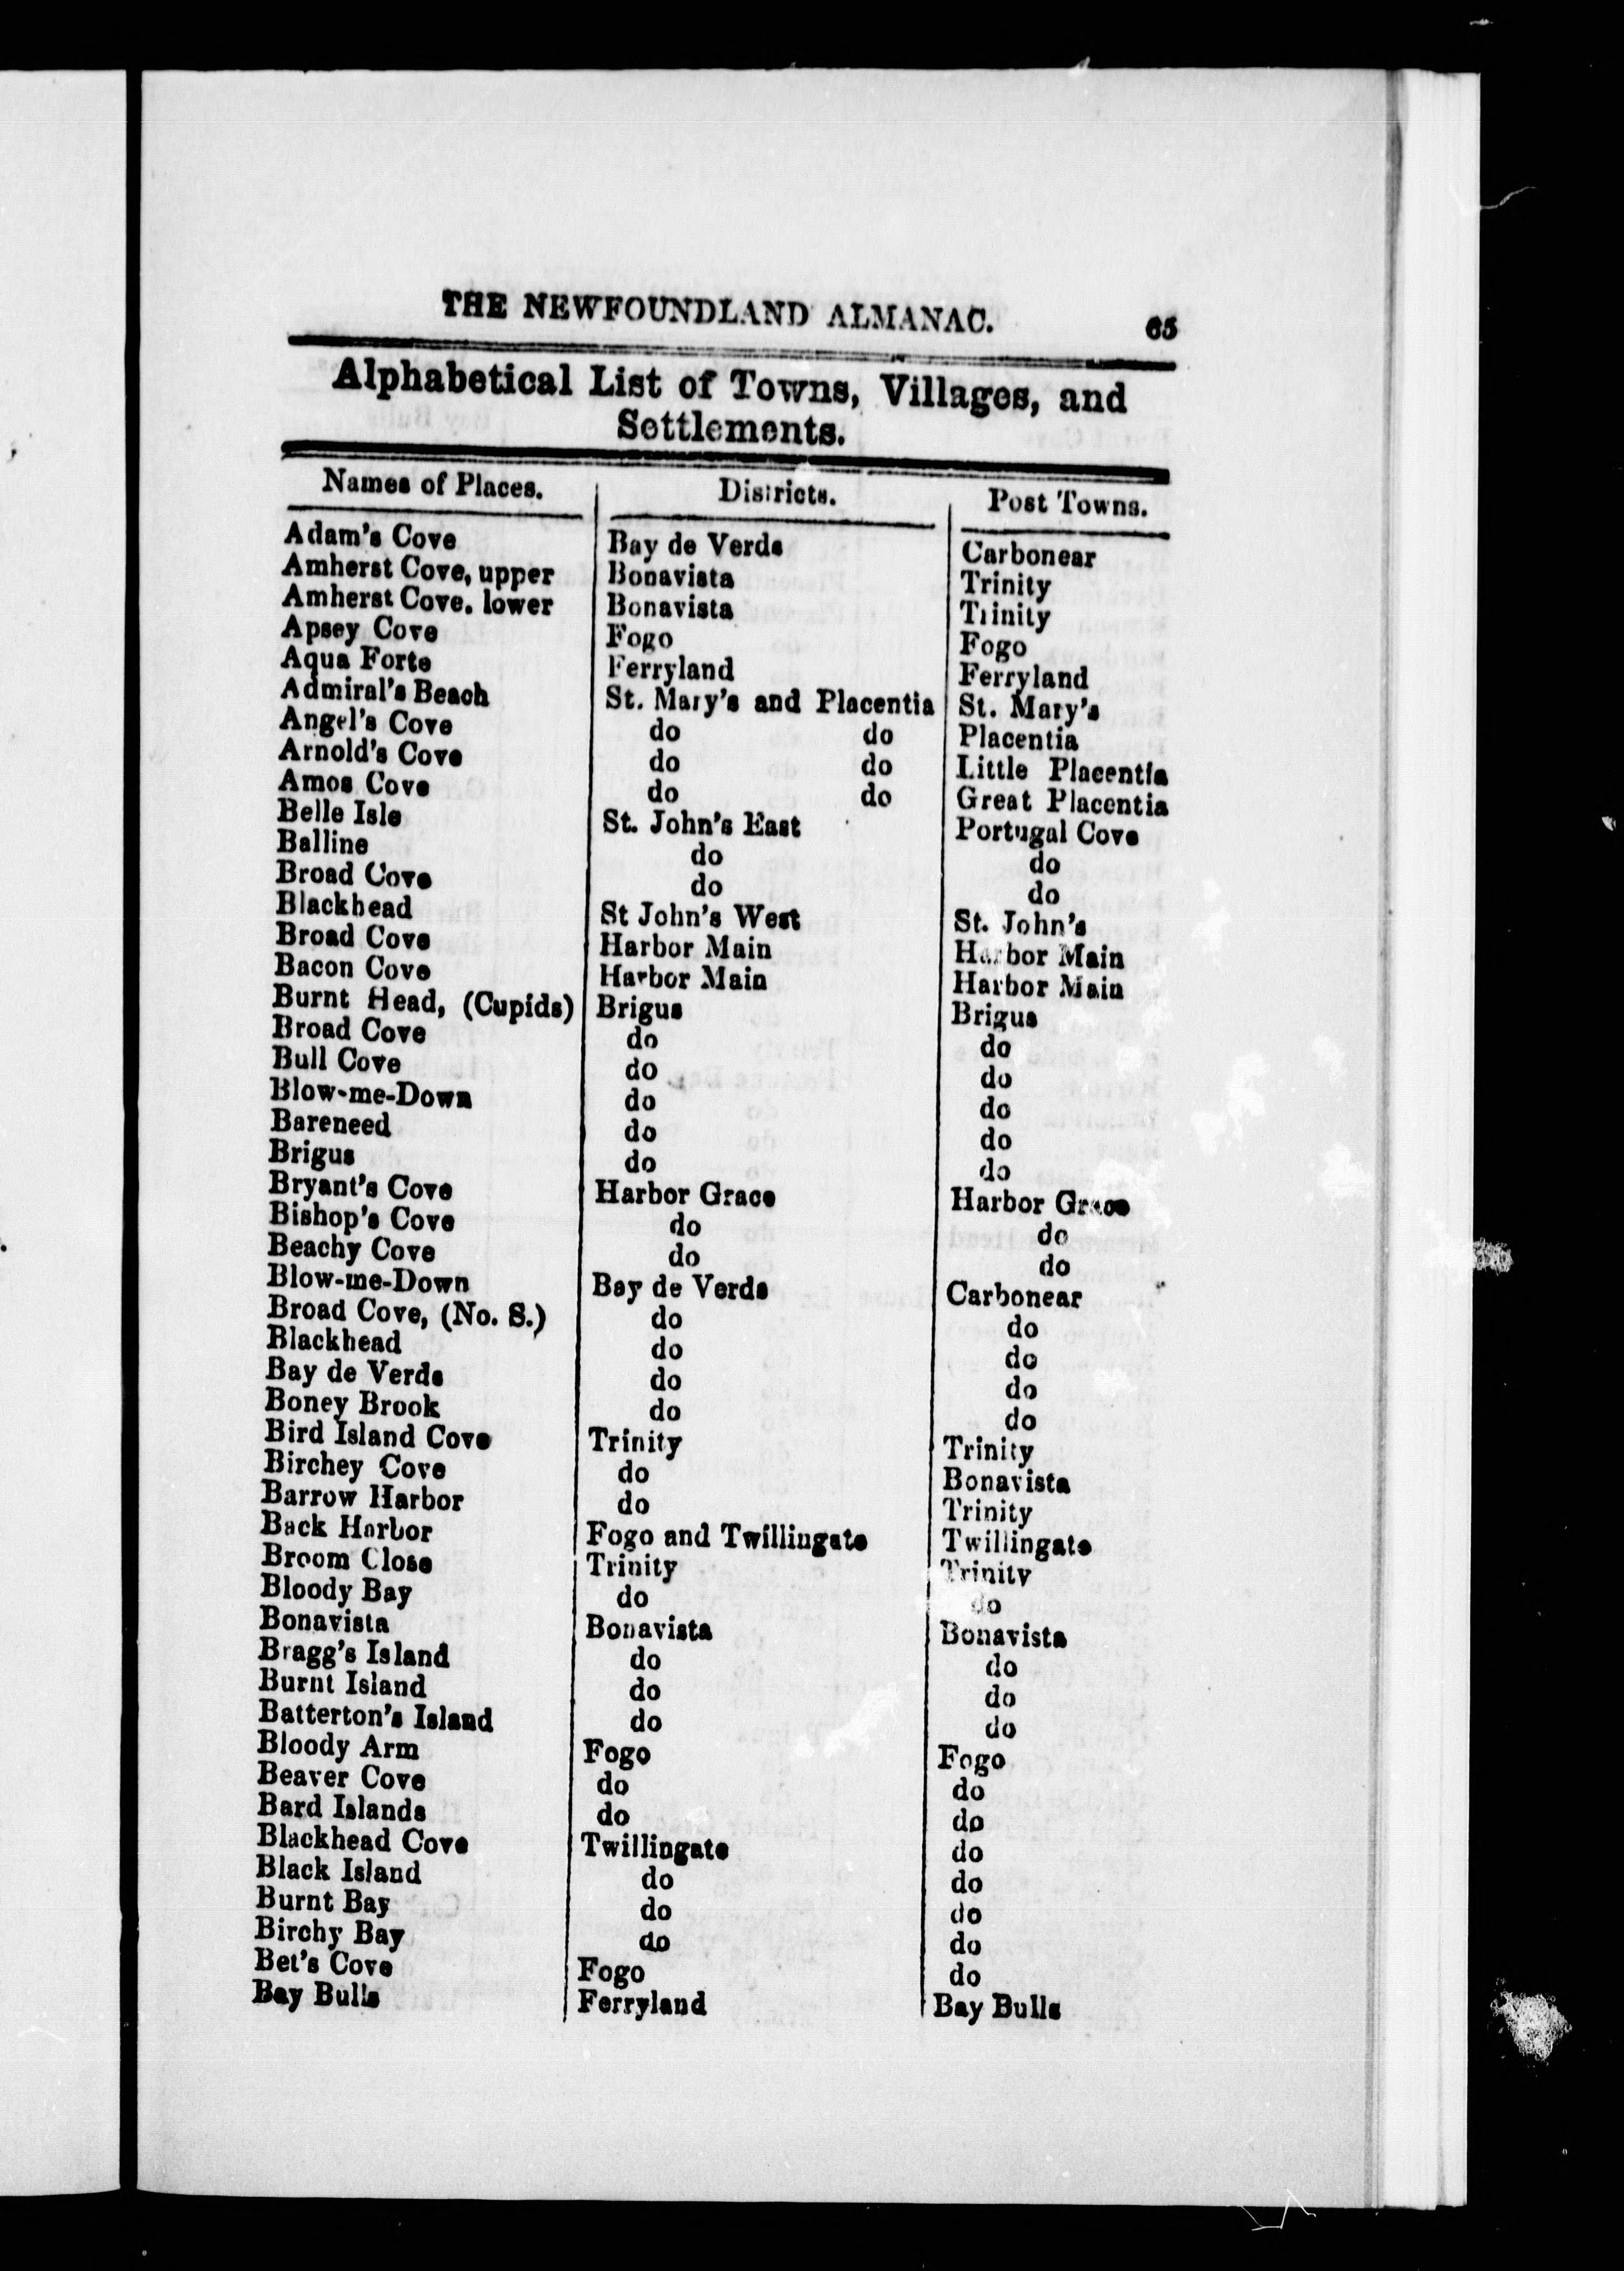 THE NEWFOUNDLAND ALMANAC. 65
Alphabetical List of Towns, Villages, and
Settlements.
Names of Places. Districts. Post Towns.
Adam's Cove Bay de Verds Carbonear
Amherst Cove, upper Bonavista Trinity
Amherst Cove. lower Bonavista Trinity
Apsey Cove Fogo Fogo
Aqua Forte Ferryland Ferryland
Admiral's Beach St. Mary's and Placentia St. Mary's
Angel's Cove do do Placentia
Arnold's Cove do do Little Placentia
Amos Cove do do Great Placentia
Belle Isle St. John's East Portugal Cove
Balline do do
Broad Cove do do
Blackhead St John's West St. John's
Broad Cove Harbor Main Harbor Main
Bacon Cove Harbor Main Harbor Main
Burnt Head, (Cupids) Brigus Brigus
Broad Cove do do
Bull Cove do do
Blow-me-Down do do
Bareneed do do
Brigus do do
Bryant's Cove Harbor Grace Harbor Grace
Bishop's Cove do do
Beachy Cove do do
Blow-me-Down Bay de Verds Carbonear
Broad Cove, (No. S.) do do
Blackhead do do
Bay de Verds do do
Boney Brook do do
Bird Island Cove Trinity Trinity
Birchey Cove do Bonavista
Barrow Harbor do Trinity
Back Harbor Fogo and Twillingate Twillingate
Broom Close Trinity Trinity
Bloody Bay do do
Bonavista Bonavista Bonavista
Bragg's Island do do
Burnt Island do do
Batterton's Island do do
Bloody Arm Fogo Fogo
Beaver Cove do do
Bard Islands do do
Blackhead Cove Twillingate do
Black Island do do
Burnt Bay do do
Birchy Bay do do
Bet's Cove Fogo do
Bay Bulls Ferryland Bay Bulls